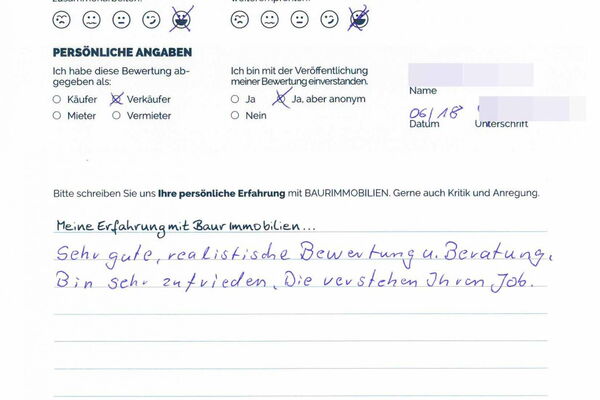 zusammenarbeiten.
weiterempfehlen.
PERSÖNLICHE ANGABEN
Ich habe diese Bewertung ab-
gegeben als:
Käufer Verkäufer
Mieter Vermieter
Ich bin mit der Veröffentlichung
meiner Bewertung einverstanden.
Ja Ja, aber anonym
Nein
Name
06/18
Datum Unterschrift
Bitte schreiben Sie uns Ihre persönliche Erfahrung mit BAURIMMOBILIEN. Gerne auch Kritik und Anregung.
Meine Erfahrung mit Baur Immobilien...
Sehr gute, realistische Bewertung u. Beratung.
Bin sehr zufrieden. Die verstehen Ihren Job.